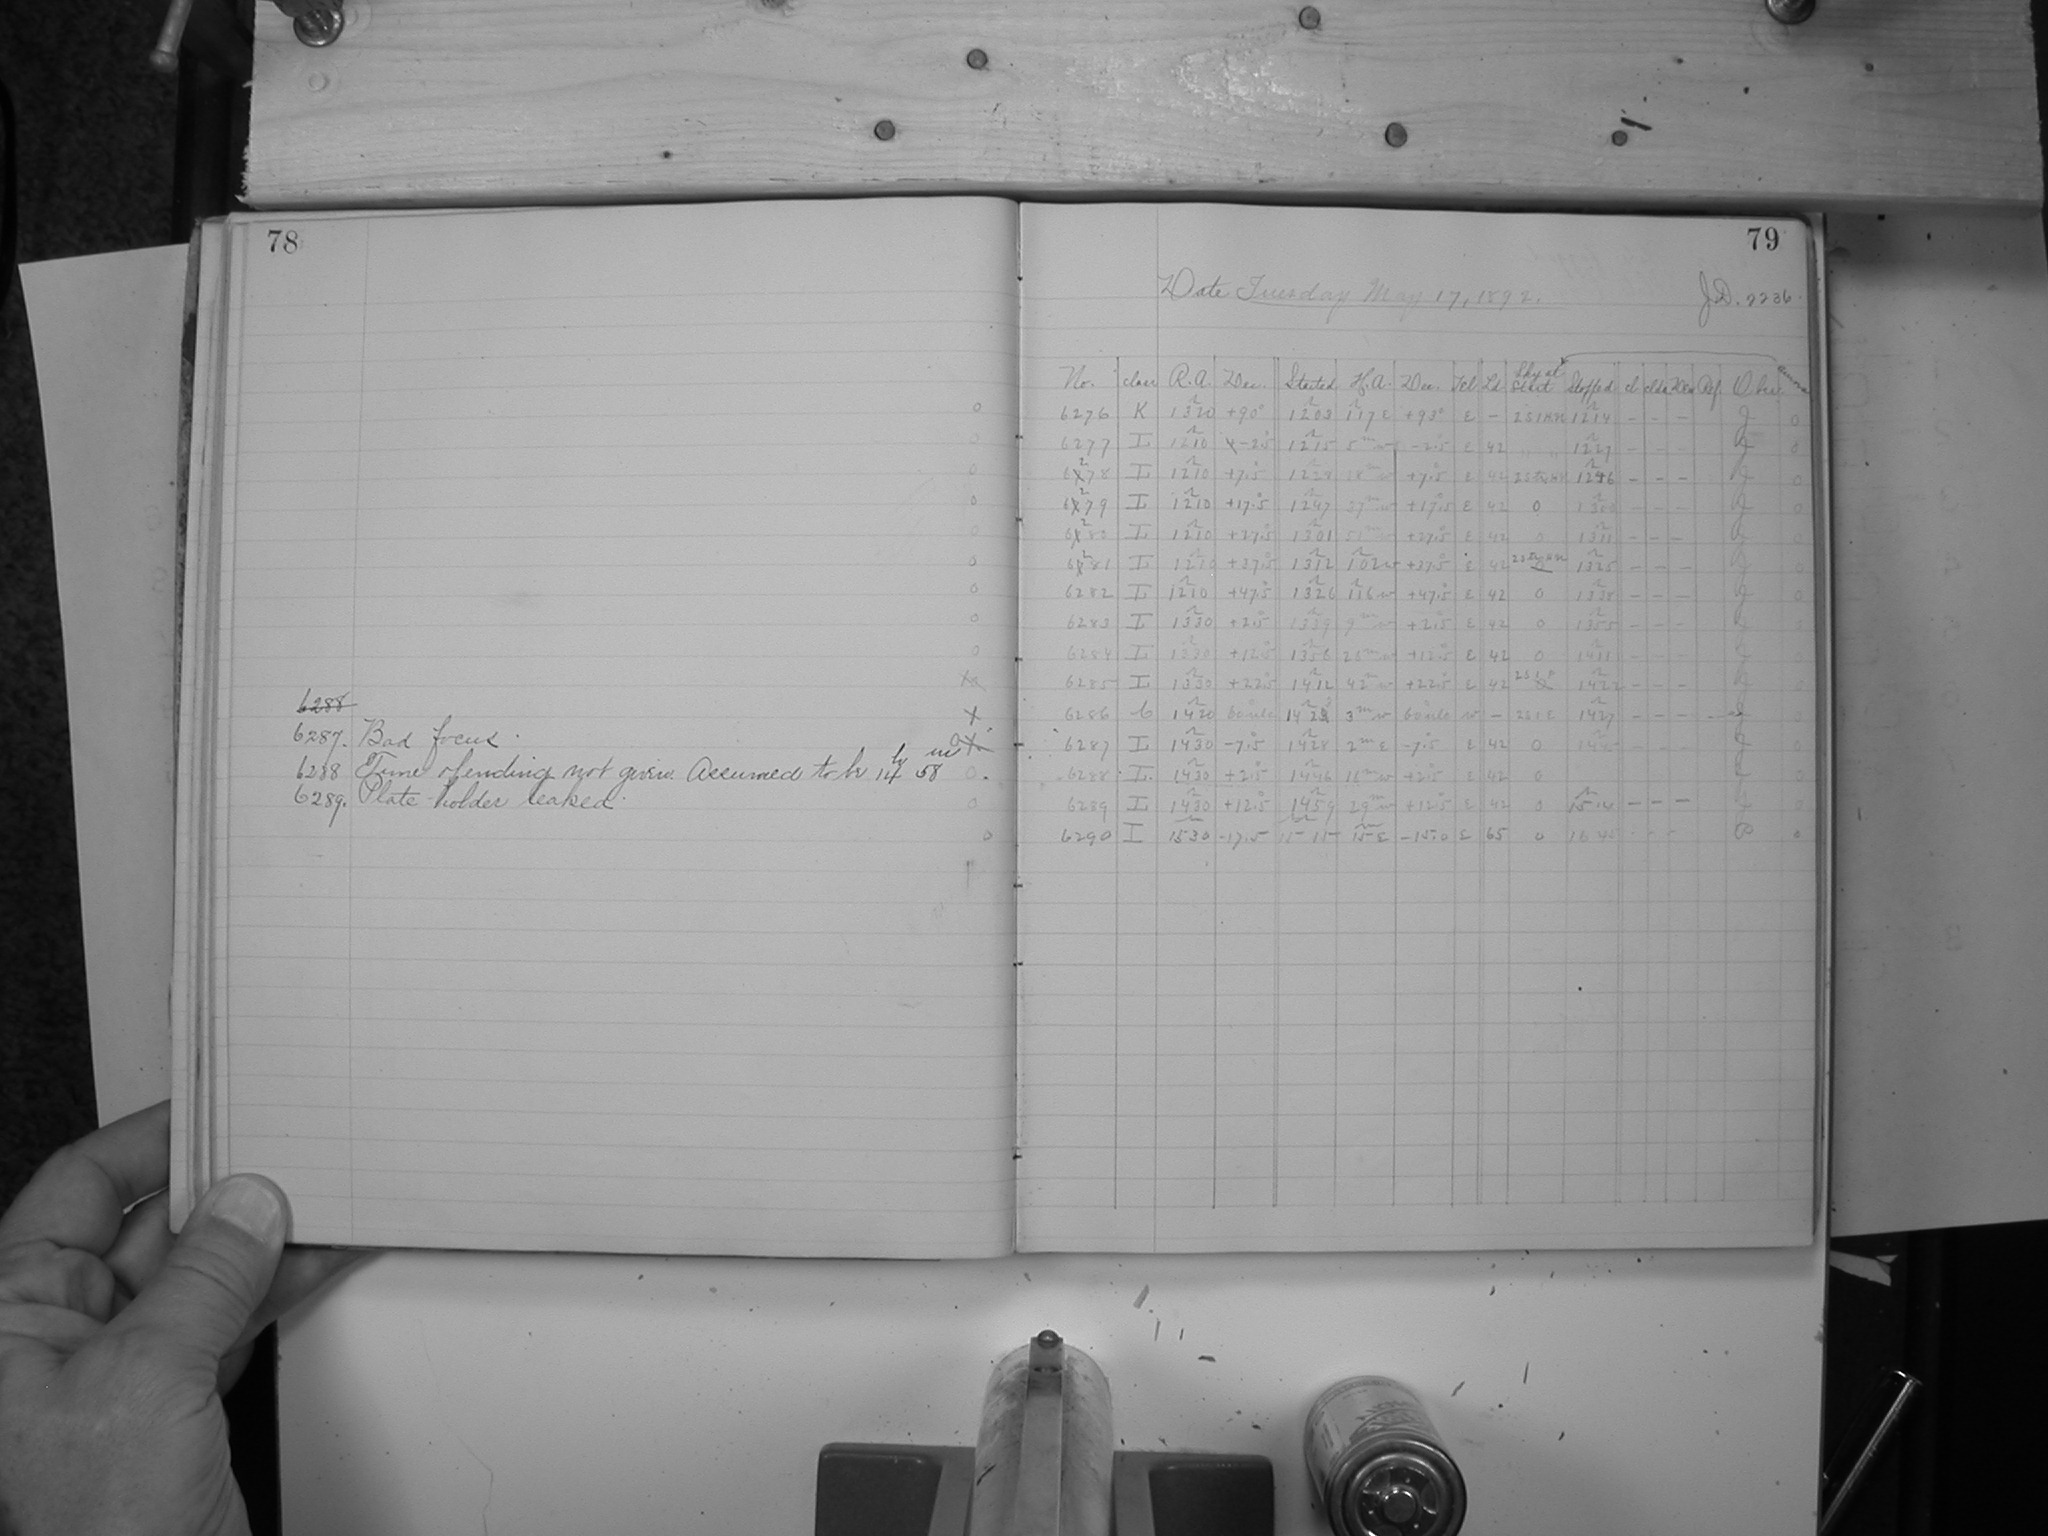 78
6288
6287. Bad focus.
6288 Time of ending not given. Assumed to be 14 h 58 m
6289. Plate-holder leaked.
79
Date Tuesday May 17, 1892.
J.D. 2236.
No. class R.A. Dec. Started H.A. Dec. Tel Ld Sky at Start Stopped cl clds Ref. Obs.
6276 K 1h320 +90° 12h03 1h17 E +93° E - 12h14 - - - J 0
6277 L 12h10 -2°.5 12h15 5m w -2°.5 E 42 " " 12h27 - - - J 0
6278 L 12h10 +7°.5 18m w +7°.5 E 42 12h46 - - - J 0
6279 L 12h10 +17°.5 12h47 37m w +17°.5 E 42 0 13h00 - - - J 0
6280 L 12h10 +27°.5 13h01 51m w +27°.5 E 42 0 13h11 - - - J 0
6281 L 12h10 +37°.5 13h12 1h02 w +37°.5 E 42 0 13h25 - - - J 0
6282 L 12h10 +47°.5 13h26 1h16 w +47°.5 E 42 0 13h38 - - - J 0
6283 L 13h30 +2°.5 13h39 9m w +2°.5 E 42 0 13h55 - - - J 0
6284 L 13h30 +12°.5 13h56 26m w +12°.5 E 42 0 14h11 - - - J 0
6285 L 13h30 +22°.5 14h12 42m w +22°.5 E 42 - - - J 0
6286 14h20 3m w w - 14h27 - - - J
6287 L 14h30 -7°.5 14h28 2m E -7°.5 E 42 0 J 0
6288 L 14h30 +2°.5 14h46 16m w +2°.5 E 42 0 0
6289 L 14h30 +12°.5 14h59 29m w +12°.5 E 42 0 15h14 - - - J 0
6290 I 15h30 -17.5 15h15 15m E -15.0 E 65 0 - - - 0